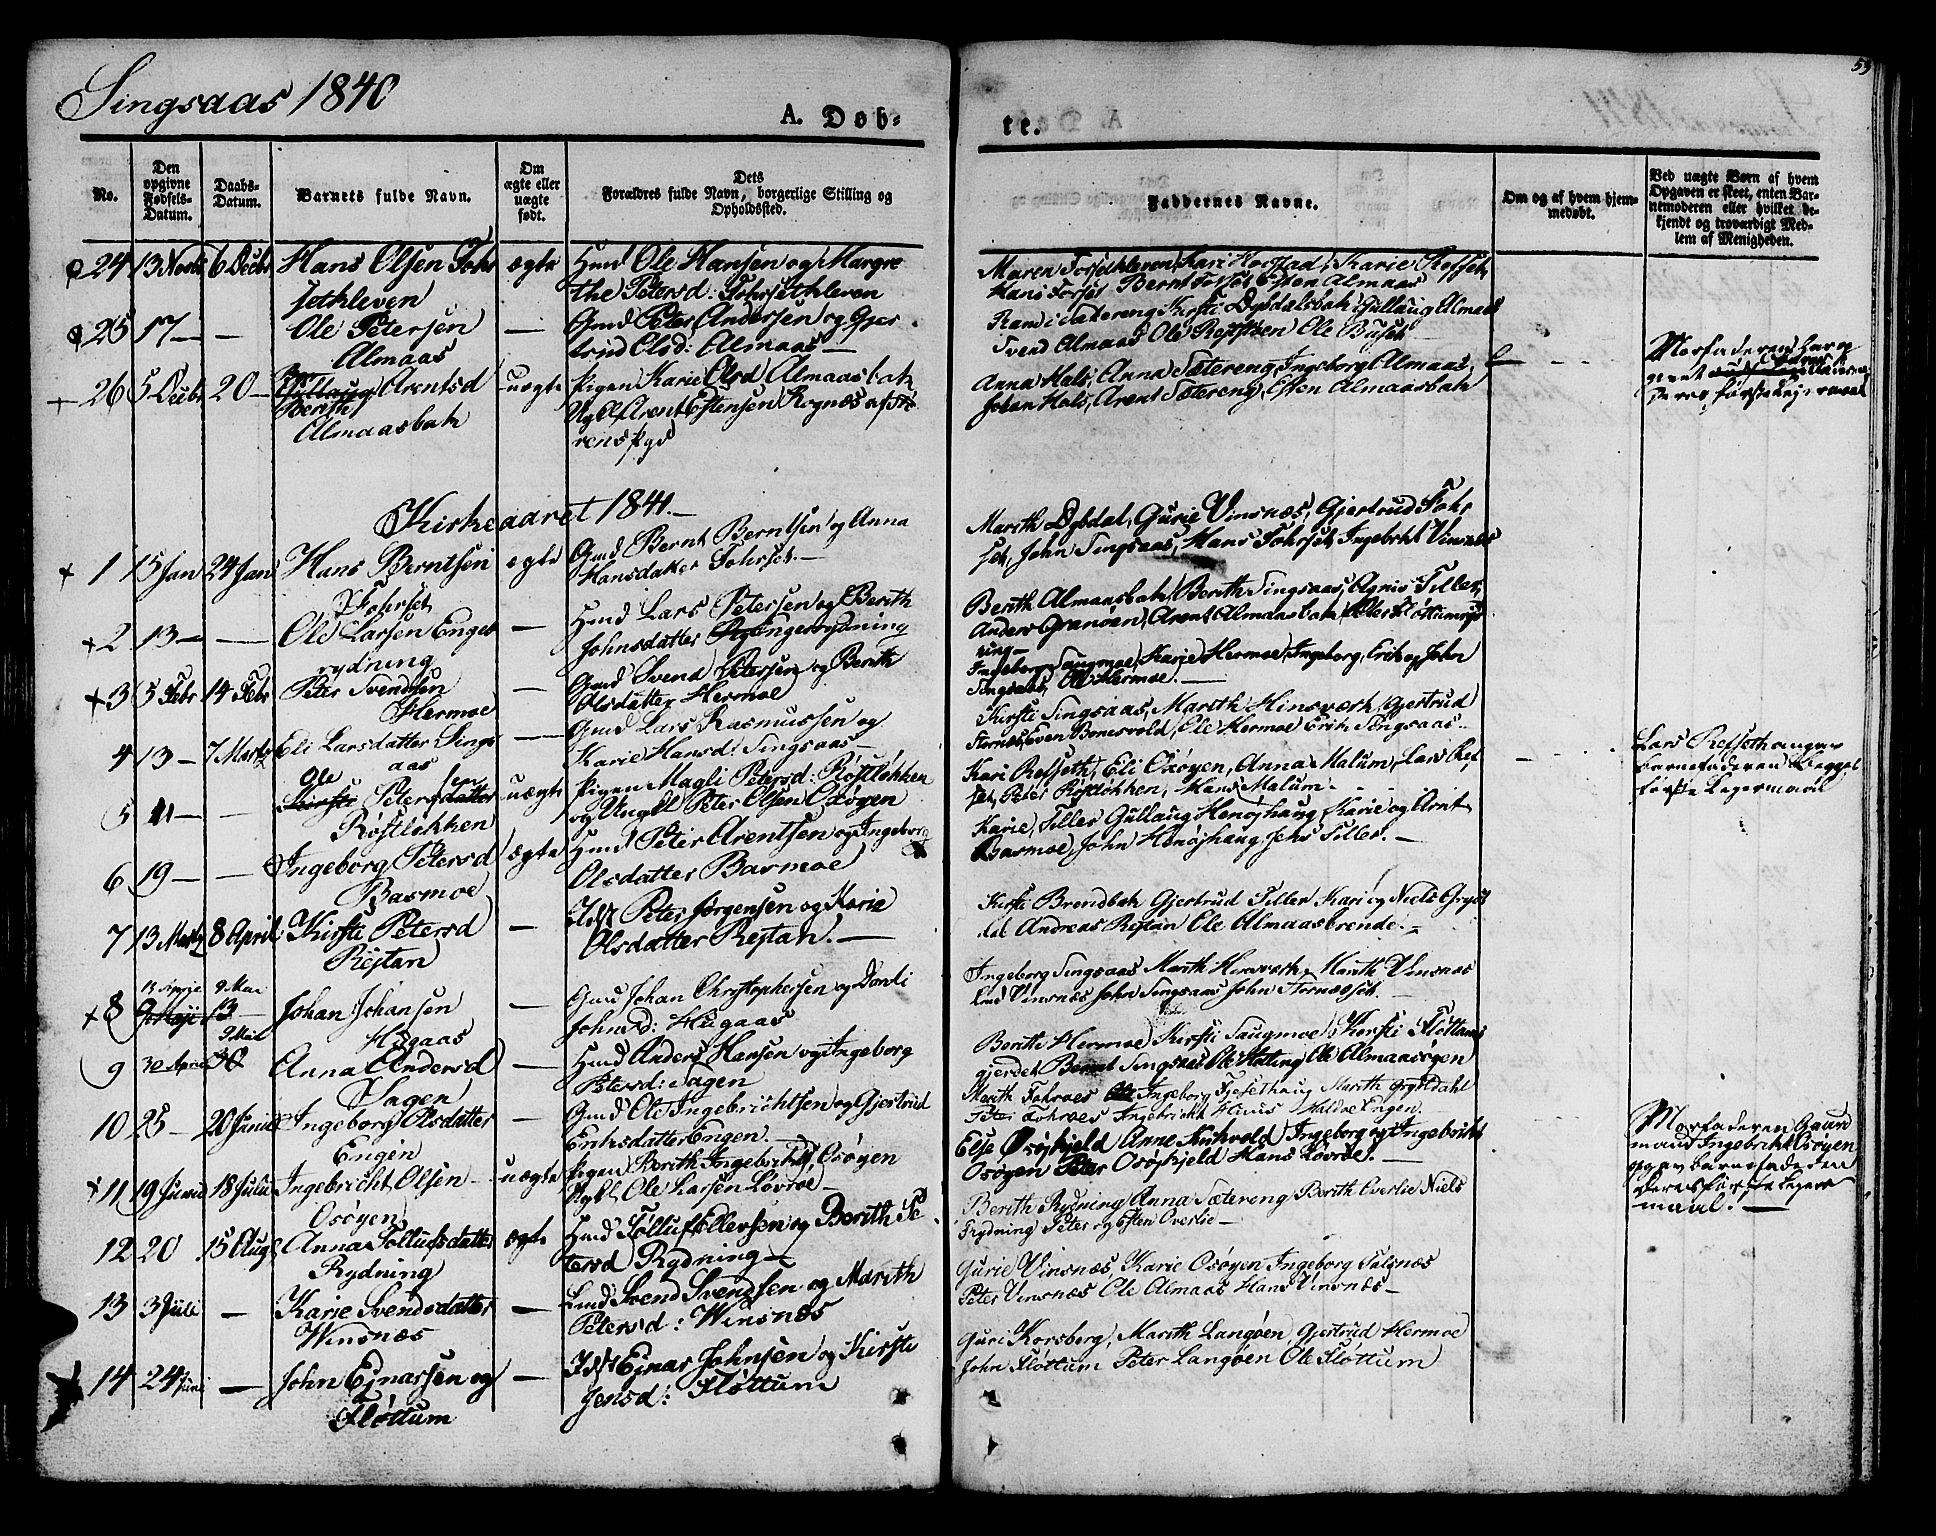 Singsaas 1840
53
A. Døb-
te.
No.
Den opgivne Fødsels-Datum.
Daabs-Datum.
Barnets fulde Navn.
Om ægte eller uægte født.
Dets Forældres fulde Navn, borgerlige Stilling og Opholdssted.
Faddernes Navne.
Om og af hvem hjem-medøbt.
Ved uægte Børn af hvem Opgaven er skeet, enten Bar-nemoderen eller hvilket be-kjendt og troværdigt Med-lem af Menigheden.
24 13 Novb 6 Decbr Hans Olsen Fohr
ægte Hmd Ole Hansen og Margre
sethkleven
the Petersd: Fohrsethkleven
Maren Forsethkleven, Kari Horstad, Karie Rofset,
Hans Forset Bernt Forset Esten Almaas
25 17 — — Ole Petersen
— Gmd Peter Andersen og Gjer
Almaas
trud Olsd: Almaas —
Kirsti Dybdalsbak, Gullaug Almaas
Svend Almaas Ole Ole Buset
26 5 Decbr 20 — Gullaug Arentsd
Berith
Almaasbak
uægte Pigen Karie Olsd Almaasbak
Ugkl Arent Estensen Rognæs af Stø
rens Pgd
Anna Hals, Anna Sætereng, Ingeborg Almaas,
Johan Hals, Arent Sætereng, Esten Almaasbak
Morfaderen har op
givet
Deres første Lejermaal
Kirkeaaret 1841.
1 15 Jan 24 Jan Hans Berntsen
Fohrset
ægte Gmd Bernt Berntsen og Anna
Hansdatter Fohrset. —
Marith Dybdal, Gurie Vinsnæs, Gjertrud Fohr
set, John Singsaas, Hans Fohrset, Ingebrkt Vinsnæs
2 13 — — Ole Larsen Enget
rydning
— Hmd Lars Petersen og Berith
Johnsdatter Engetrydning
Berith Almaasbak, Berith Singsaas, Agnis Tiller,
Anders Granøen, Arent Almaasbak,
ning —
3 5 Febr 14 Febr Peter Svendsen
Hermoe
— Gmd Svend Petersen og Berith
Olsdatter Hermoe
Ingeborg Saugmoe, Karie Hermoe, Ingeborg, Erik og John
Singsaas, Ole Hermoe. —
4 13 — 7 Marts Eli Larsdatter Sings
aas
— Gmd Lars Rasmussen og
Karie Hansd: Singsaas —
Kirsti Singsaas, Marith Hinsværk, Gjertrud
Stornæs, Even Bonesvold, Ole Hermoe Erik Singsaas.
5 11 — — Ole sen
Kirsti Petersdatter
Røstløkken
uægte Pigen Magli Petersd: Røstløkken
og Ungkl Peter Olsen Osøyen
Kari Rofseth, Eli Osøyen, Anna Malum, Lars Rof
set, Peter Røstløkken, Hans Malum.
Lars Rofseth angav
barnefaderen Begges
første Lejermaal
6 19 — — Ingeborg Petersd
Basmoe
ægte Hmd Peter Arentsen og Ingeborg
Olsdatter Basmoe
Karie, Tiller Gullaug Henøjhaug, Karie og Arnt
Basmoe, John Henøjhaug Jens Tiller. —
7 13 Marts 8 April Kirsti Petersd
Rejtan
— Idst Peter Jørgensen og Karie
Olsdatter Rejtan. —
Kirsti Brendbak Gjertrud Tiller Kari og Niels Grydt
dal Andreas Rejtan Ole Almaasbrende. —
13 Aprie 9 Mai
8 13 — Johan Johansen
Hugaas
— Gmd Johan Christophersen og Dordi
Johnsd: Hugaas
Ingeborg Singsaas Marith Hinsværk, Marith Vinsnæs
Lars Vinsnæs John Singsaas John Stornæsset. —
9 Mai
9 30 April 30 Anna Andersd
Sagen
Hmd Anders Hansen og Ingeborg
Petersd: Sagen
Berith Hermoe, Kirsti Saugmoe, Kirsti Fløttum
gjerdet Bernt Singsaas Ole Kotting Ole Almaasøyen
10 25 — 20 Junie Ingeborg Olsdatter
Engen
— Gmd Ole Ingebrichtsen og Gjertrud
Eriksdatter Engen. —
Marith Fohraas Ingeborg Fjesethaug Marith Grytdahl
Peter Fohraas Ingebrickt Hinus Haldoe Engen.
11 19 Junie 18 Julii Ingebricht Olsen —
Osøyen
uægte Pigen Berith Ingebrichtd, Osøyen
Ugkl Ole Larsen Løvrøe —
Else Øsøjkjeld Anne Kirkvold, Ingeborg og Ingebrikt
Osøyen Peter Osøjkjeld Hans Løvrøe. —
Morfaderen Gaard
mand Ingebrikt Osøyen
opgav barnefaderen
Deres første Lejer
maal! —
12 20 15 Aug Anna Tollufsdatter
Rydning
ægte Hmd Tølluf Ellevsen og Berith Pe
tersd Rydning —
Berith Rydning Anna Sætereng Berith Everlie Niels
Rydning Peter og Esten Overlie —
13 3 Juli — Karie Svendsdatter
Winsnæs
— Lmd Svend Svendsen og Marith
Petersd: Winsnæs
Gurie Vinsnæs Karie Osøyen Ingeborg
Peter Vinsnæs Ole Almaas Hans Vinsnæs —
14 24 Juni — John Ejnarsen og
Fløttum
— Idst Ejnar Johnsen og Kirsti
Jensd: Fløttum
Guri Korsberg, Marith Langøen, Gjertrud Hermoe
John Fløttum Peter Langøen Ole Fløttum